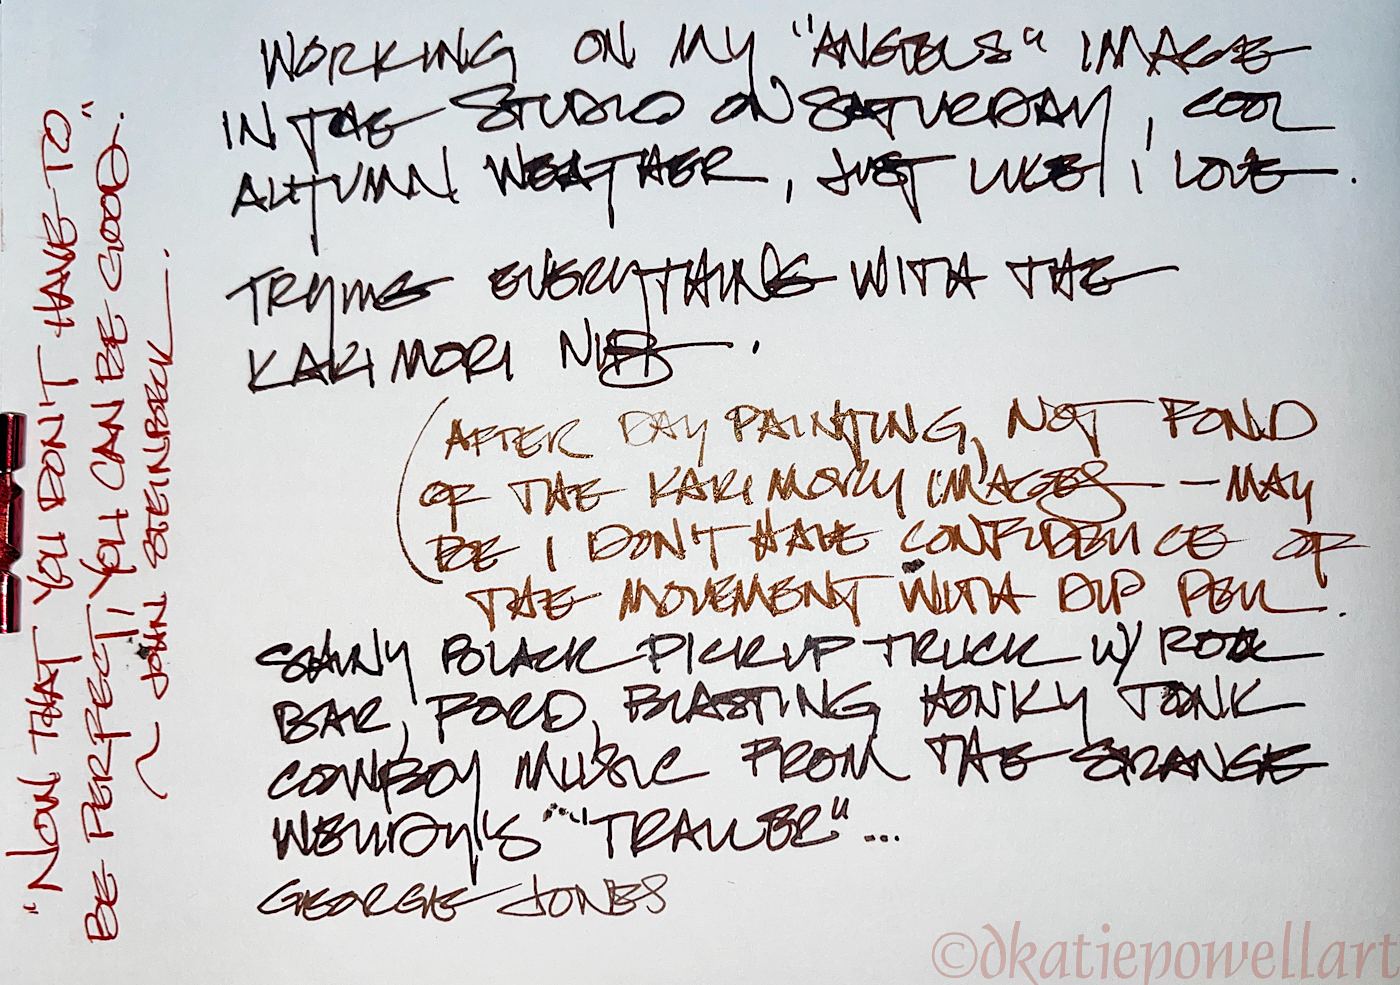 "NOW THAT YOU DON'T HAVE TO
BE PERFECT, YOU CAN BE GOOD."
~ JOHN STEINBECK.
WORKING ON MY "ANGELS" IMAGE
IN THE STUDIO ON SATURDAY, COOL
AUTUMN WEATHER, JUST LIKE I LOVE.
TRYING EVERYTHING WITH THE
KAKIMORI NIB.
(AFTER DAY PAINTING, NOT FOND
OF THE KAKIMORY IMAGES -- MAY
BE I DON'T HAVE CONFIDENCE OF
THE MOVEMENT WITH DIP PEN.
SHINY BLACK PICKUP TRUCK W/ ROLL
BAR, FORD, BLASTING HONKY TONK
COWBOY MUSIC FROM THE STRANGE
WENDY'S "TRAILER"...
GEORGE JONES
©dkatiepowellart